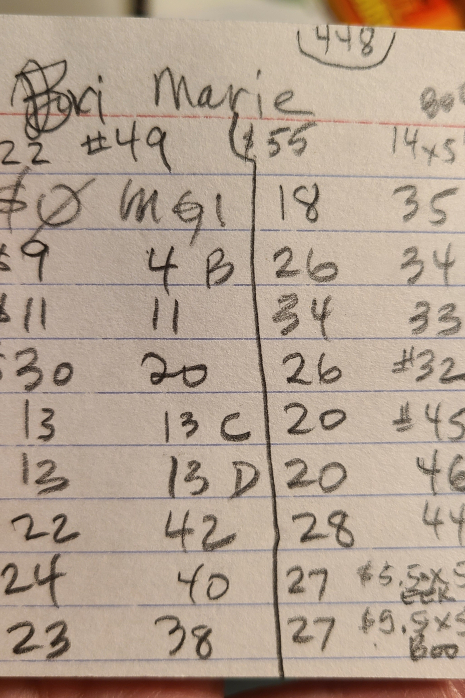 448
Marie Boo
22 #49 $55 14x5
$0 MG1 18 35
$9 4 B 26 34
$11 11 34 33
$30 20 26 #32
13 13 C 20 #45
13 13 D 20 46
22 42 28 44
24 40 27 $5.50x5
23 38 27 $9.5x5
Boo